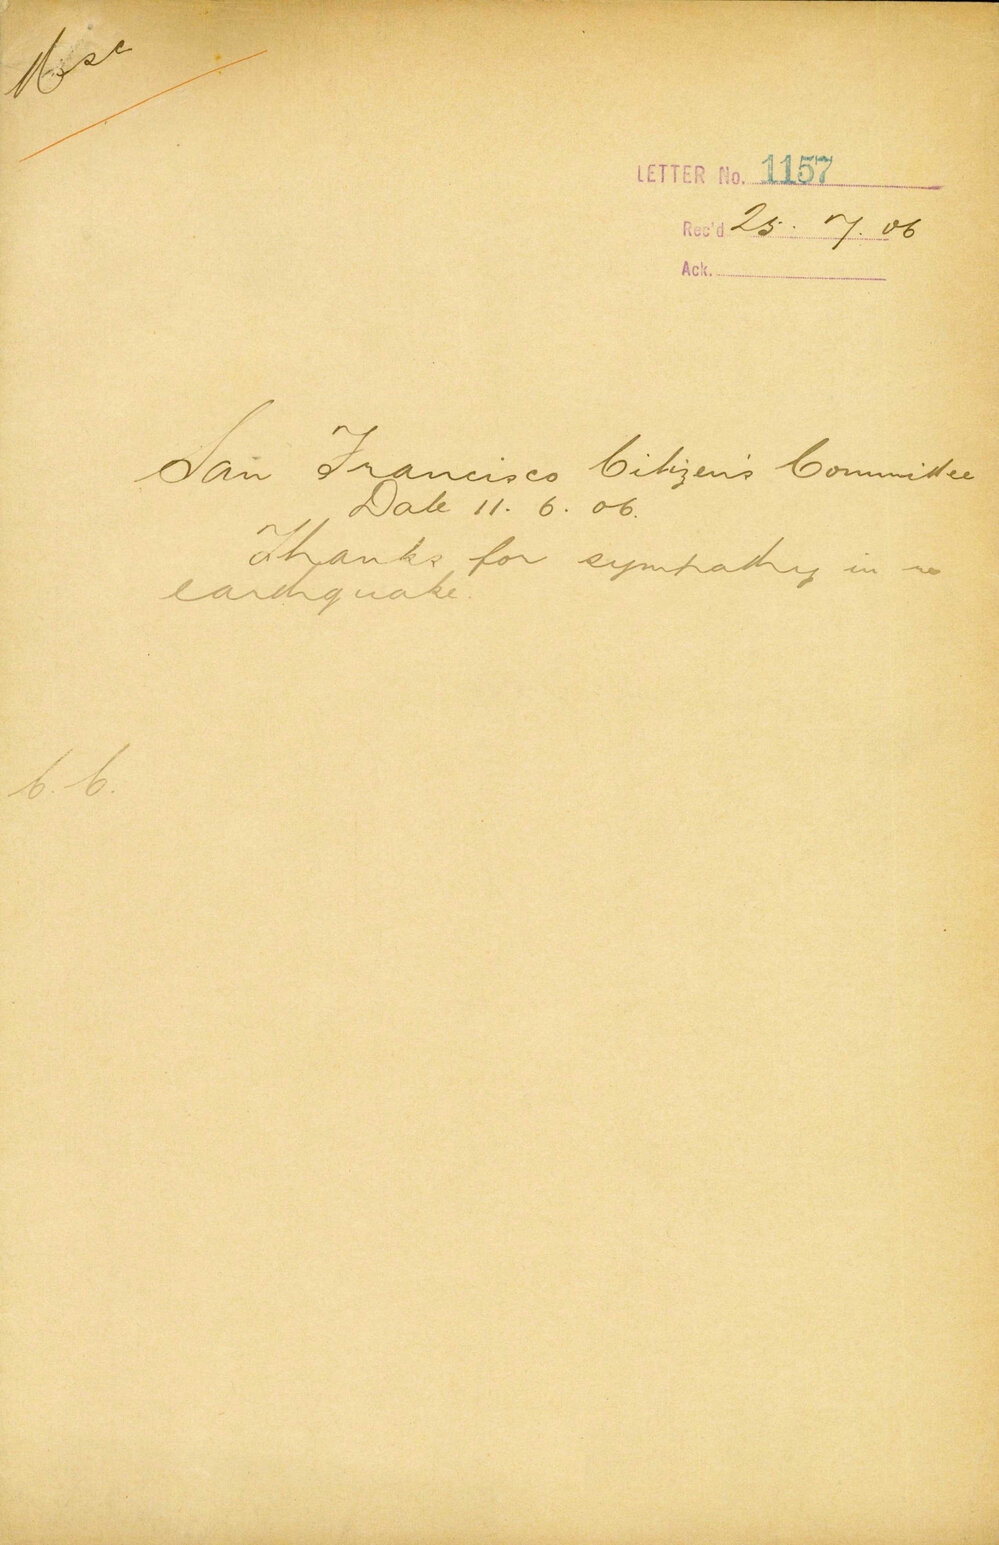 Misc
LETTER No. 1157
Rec'd 25. 7. 06
Ack.
San Francisco Citizen's Committee
Date 11. 6. 06.
Thanks for sympathy in re
earthquake.
C. C.